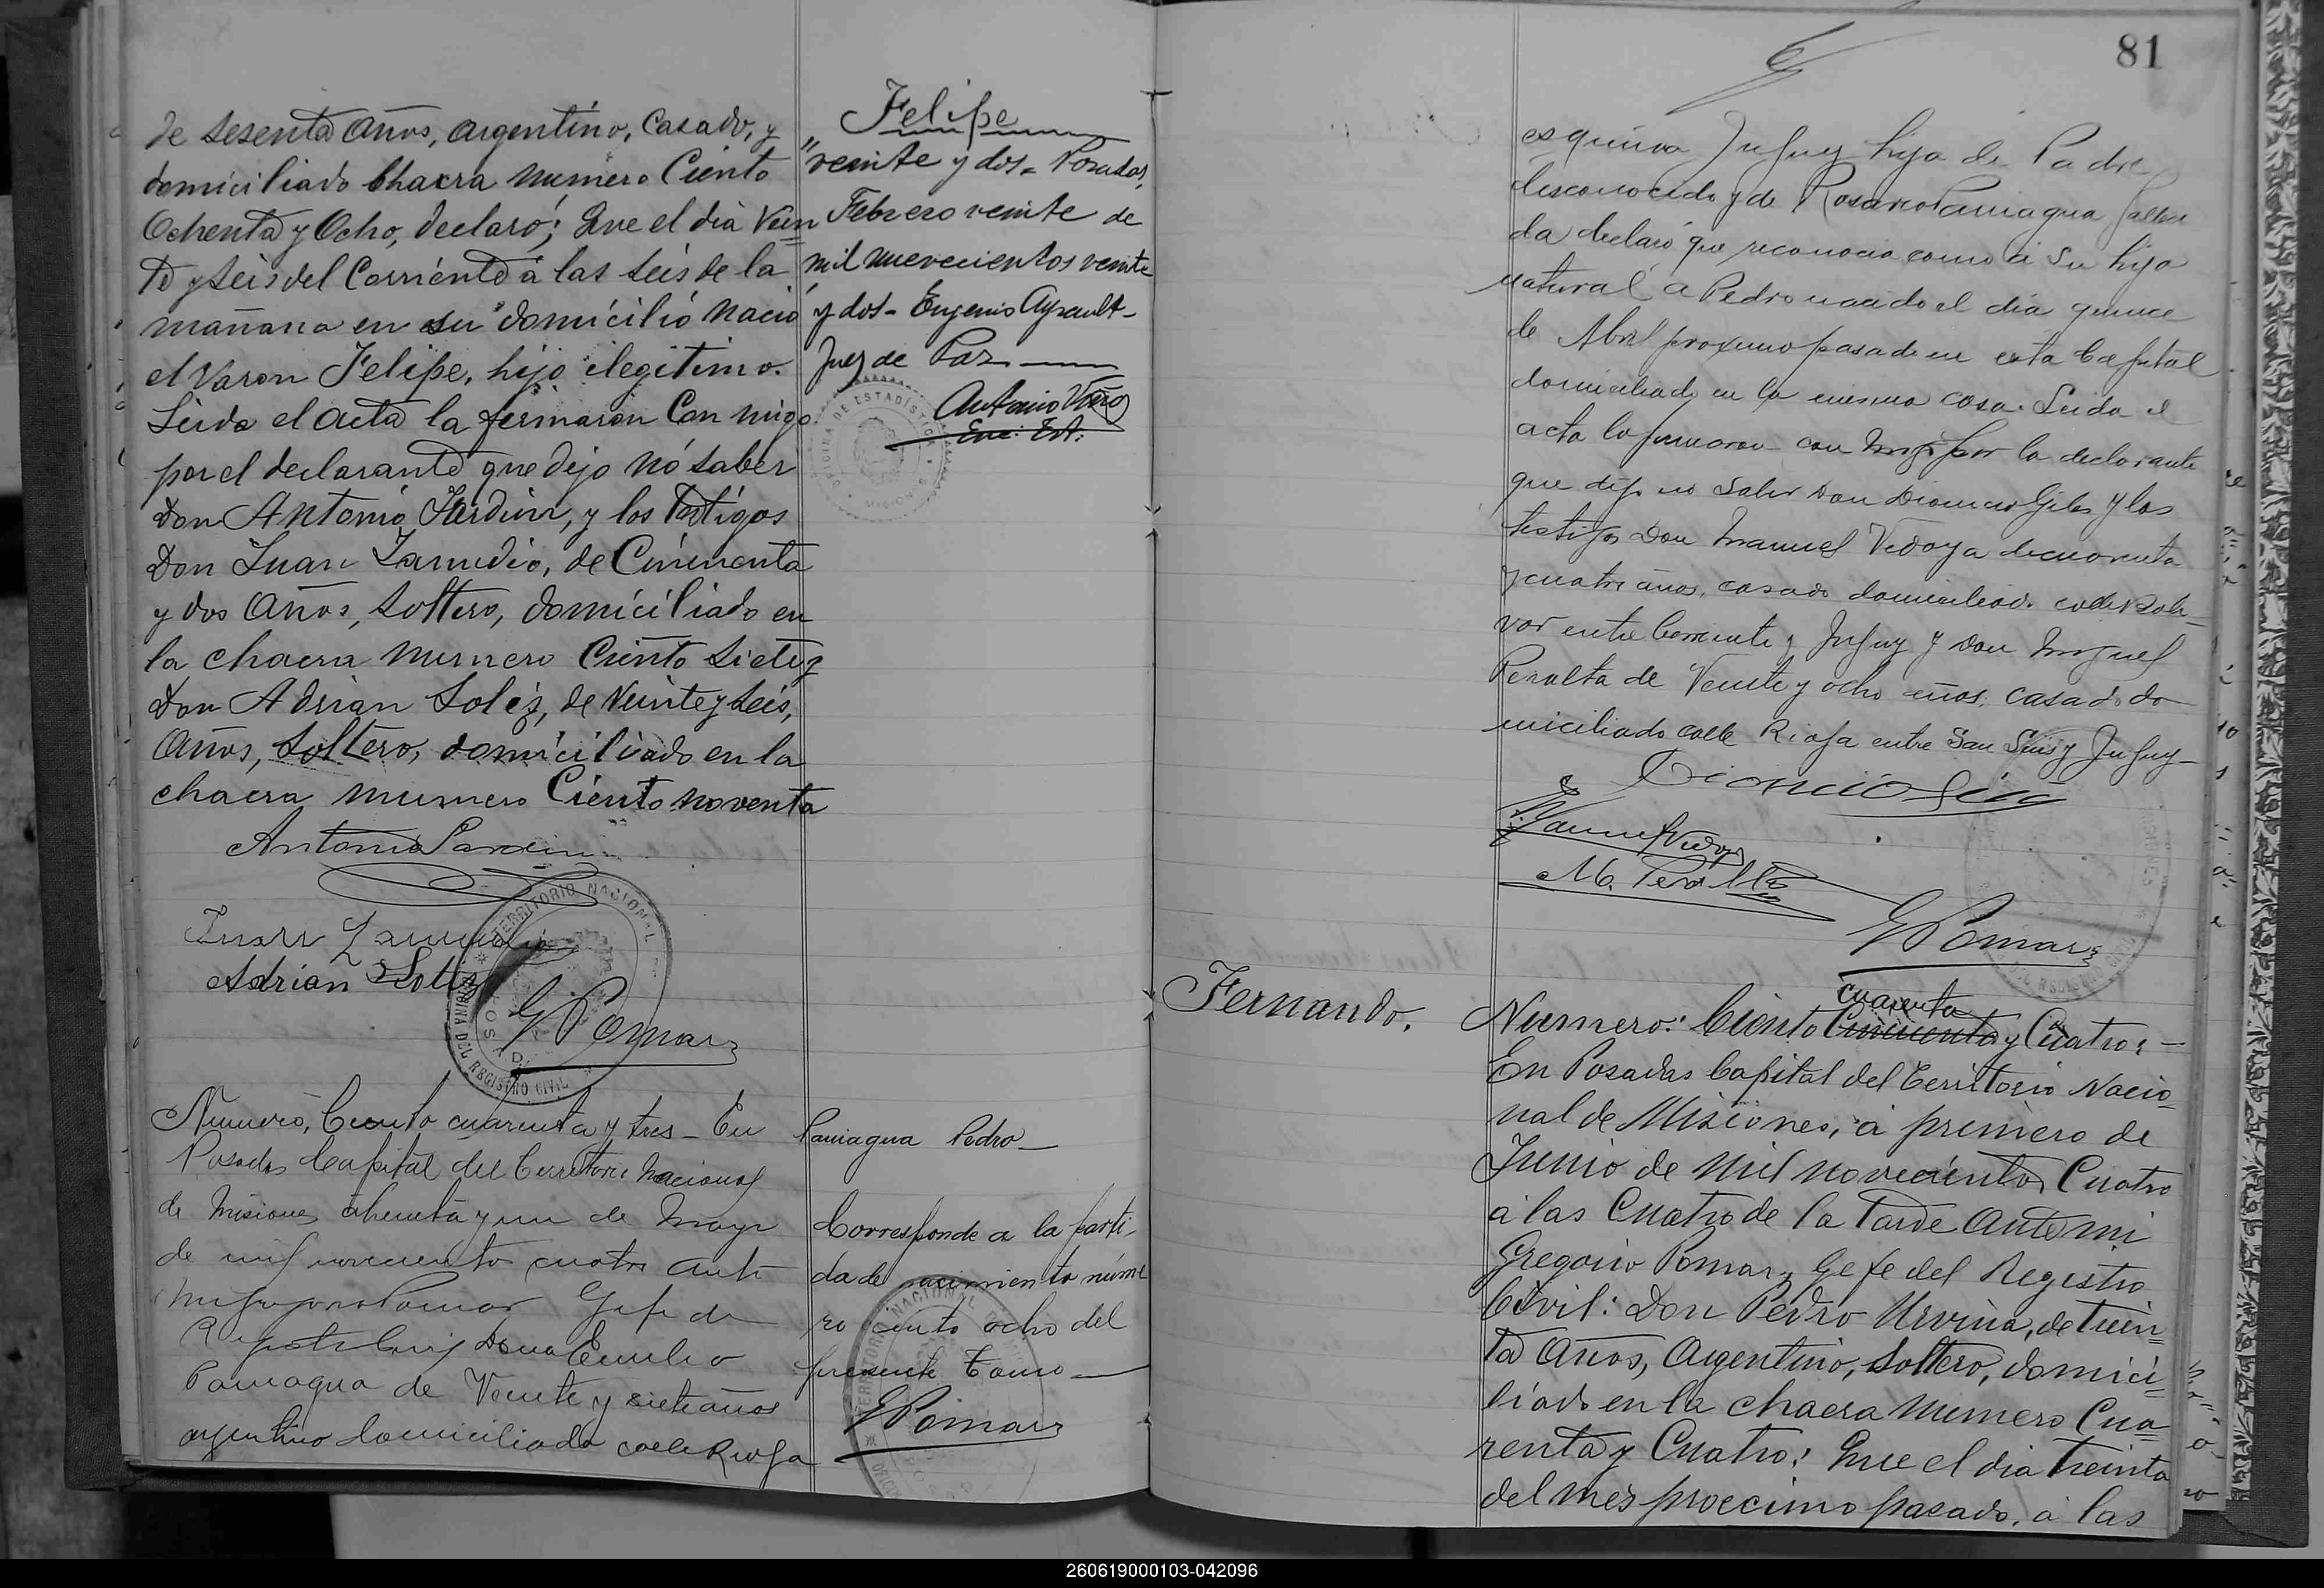 de sesenta Años, argentino, Casado, y
domiciliado Chacra numero Ciento
Ochenta y Ocho, declaró; Que el dia Vein
te y seis del Corriente á las seis de la
mañana en su domicilió nació
el Varon Felipe, hijo ilegitimo.
Leida el acta la firmaron Con migo
por el declarante que dijo nó saber
Don Antonio, y los Testigos
Don Juan Zamudio, de Cincuenta
y dos Años, Soltero, domiciliado en
la chacra numero Ciento siete y
Don Adrian Solis, de Veinte y seis,
Años, Soltero, domiciliado en la
chacra numero Ciento noventa
Antonio
Juan Zamudio
Adrian Solis
G Pomar
TERRITORIO NACIONAL
OFICINA DEL REGISTRO CIVIL
POSADAS
Felipe
veinte y dos - Posadas,
Febrero veinte de
mil nuevecientos veinte
y dos - Eugenio Ayrault -
Juez de Paz
Antonio
Enc: Est:
OFICINA DE ESTADÍSTICA
MISIONES
Numero, Ciento cuarenta y tres - En
Posadas Capital del Territorio Nacional
de Misiones á treinta y un de Mayo
de mil novecientos cuatro ante
mi Gregorio Pomar Gefe de
Registro Civil Dona Emilia
Paniagua de Veinte y siete años
argentina domiciliada calle Rioja
Paniagua Pedro -
Corresponde a la parti-
da de nacimiento núme
ro ciento ocho del
presente Tomo
G Pomar
81
esquina Jujuy hija de Padre
desconocido y de Rosario Paniagua
da declaró que reconocia como á su hijo
natural á Pedro nacido el dia quince
de Abril proximo pasado en esta Capital
domiciliado en la misma casa. Leida el
acta la firmaron con migo por la declarante
que dijo no saber Don Giles y los
testigos Don Manuel Vedoya de cuarenta
y cuatro años, casado domiciliado calle Boli-
var entre Corrientes y Jujuy y Don Miguel
Peralta de Veinte y ocho años, casado do
miciliado calle Rioja entre San Luis y Jujuy -
Manuel Vedoya
M. Peralta
G Pomar
Fernando.
cuarenta
Numero: Ciento Cincuenta y Cuatro: -
En Posadas Capital del Territorio Nacio-
nal de Misiones, á primero de
Junio de mil novecientos Cuatro
á las Cuatro de la Tarde Ante mi
Gregorio Pomar, Gefe del Registro
Civil: Don Pedro Urvina, de Trein-
ta Años, Argentino, Soltero, domici-
liado en la chacra numero Cua-
renta y Cuatro: Que el dia treinta
del mes proecimo pasado, á las
260619000103-042096